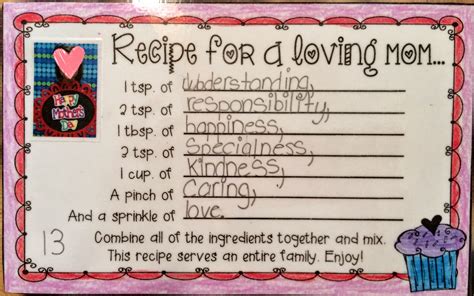 Recipe for a loving mom...
Happy
Mother's
Day
1 tsp. of understanding,
2 tsp. of responsibility,
1 tbsp. of happiness,
2 tsp. of Specialness,
1 cup. of kindness,
A pinch of caring,
And a sprinkle of love.
13
Combine all of the ingredients together and mix.
This recipe serves an entire family. Enjoy!